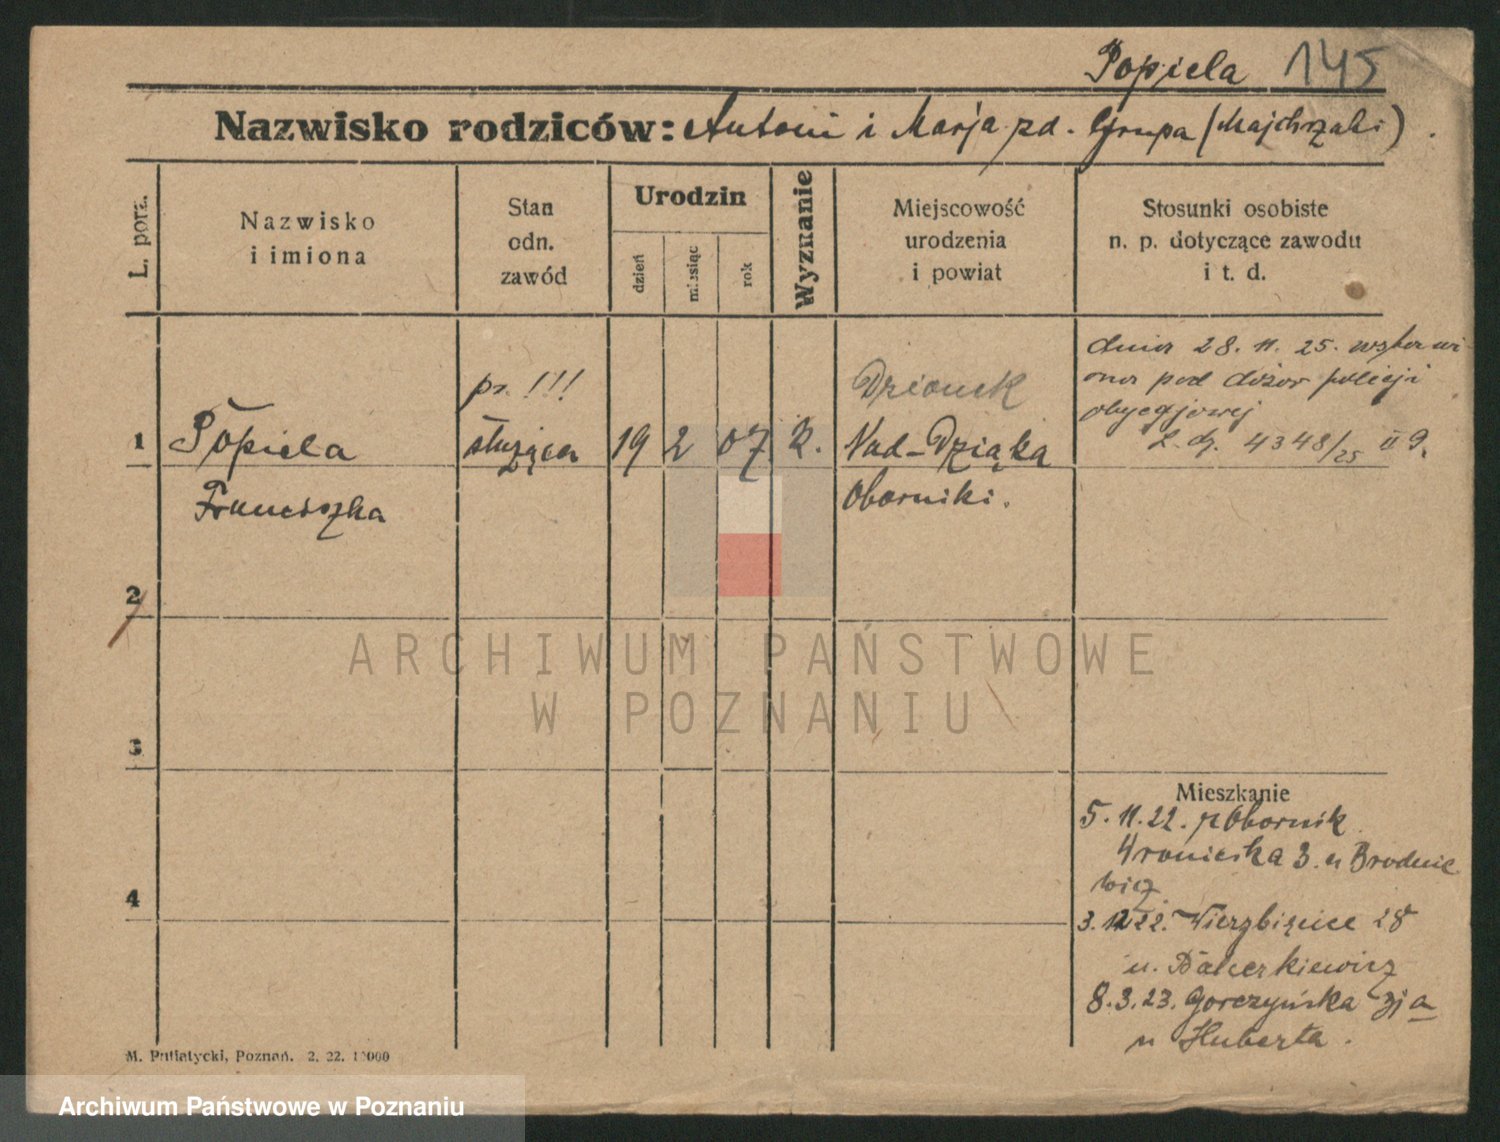 Popiela 145
Nazwisko rodziców: Antoni i Marja zd. Grupa (Majchrzaki).
L. porz.
Nazwisko
i imiona
Stan
odn.
zawód
Urodzin
dzień
miesiąc
rok
Wyznanie
Miejscowość
urodzenia
i powiat
Stosunki osobiste
n. p. dotyczące zawodu
i t. d.
1
Popiela
Franciszka
pr. !!!
służąca
19 2 07 k.
Dzionek
Nad-Dziąka
Oborniki.
dnia 28. 11. 25. wstawi-
ona pod dozór policji
obyczajowej
L. dz. 4348/25 II
2
3
4
Mieszkanie
5. 11. 22. z Obornik
Wroniecka 3. u Brodnie
wicz.
3. 12 22. Wierzbięcice 28
u. Balcerkiewicz
8. 3. 23. Gorczyńska 31 a
u Huberta.
M. Putiatycki, Poznań. 2. 22. 10000
ARCHIWUM PAŃSTWOWE
W POZNANIU
Archiwum Państwowe w Poznaniu